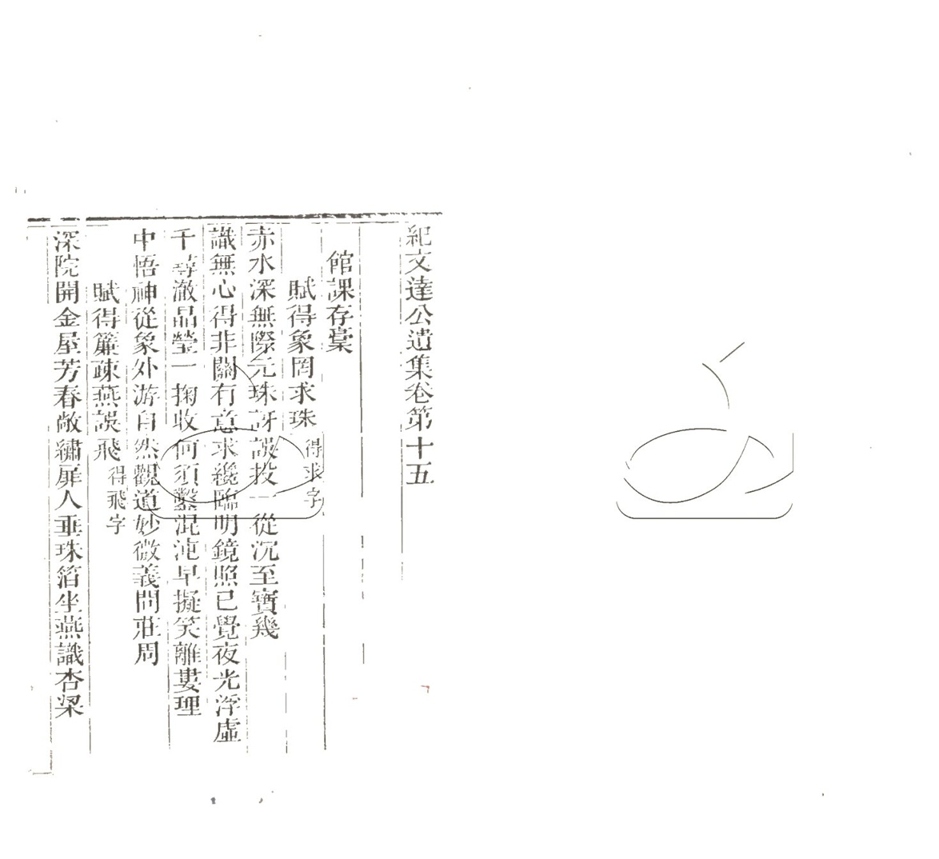 紀文達公遺集卷第十五
館課存稾
賦得象罔求珠得求字
赤水深無際元珠訝誤投一從沉至寶幾
識無心得非關有意求纔臨明鏡照已覺夜光浮虛
千尋澈晶瑩一掬收何須鑿混沌早擬笑離婁理
中悟神從象外游自然觀道妙微義問莊周
賦得簾疎燕誤飛得飛字
深院開金屋芳春敞繡扉人垂珠箔坐燕識杏梁